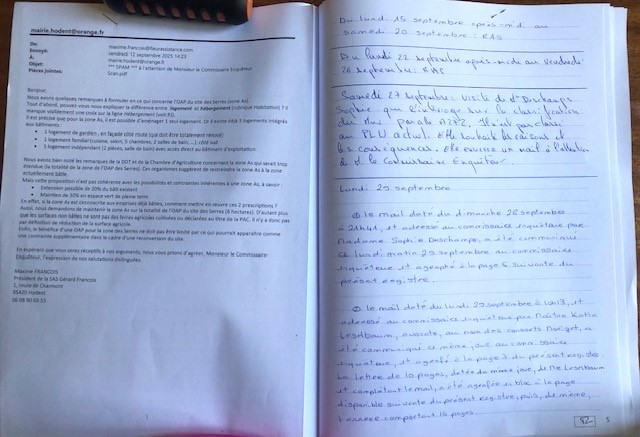 mairie.hodent@orange.fr
De: maxime.francois@fleurassistance.com
Envoyé: vendredi 12 septembre 2025 14:23
À: mairie.hodent@orange.fr
Objet: *** SPAM *** à l'attention de Monsieur le Commissaire Enquêteur
Pièces jointes: Scan.pdf
Bonjour,
Nous avons quelques remarques à formuler en ce qui concerne l'OAP du site des Serres (zone As).
Tout d'abord, pouvez-vous nous expliquer la différence entre logement et hébergement (rubrique Habitation) ? Il
manque visiblement une croix sur la ligne hébergement
Il est précisé que pour la zone As, il est possible d'aménager 1 seul logement. Or il existe déjà 3 logements intégrés
aux bâtiments :
1 logement de gardien, en façade côté route (qui doit être totalement rénové)
1 logement familial (cuisine, salon, 5 chambres, 2 salles de bain, ...) côté sud
1 logement indépendant (2 pièces, salle de bain) avec accès direct au bâtiment d'exploitation
Nous avons bien noté les remarques de la DDT et de la Chambre d'Agriculture concernant la zone As qui serait trop
étendue (la totalité de la zone de l'OAP des Serres). Ces organismes suggèrent de restreindre la zone As à la zone
actuellement bâtie.
Mais cette proposition n'est pas cohérente avec les possibilités et contraintes inhérentes à une zone As, à savoir :
Extension possible de 20% du bâti existant
Maintien de 30% en espace vert de pleine terre
En effet, si la zone As est circonscrite aux emprises déjà bâties, comment mettre en œuvre ces 2 prescriptions ?
Aussi, nous demandons de maintenir la zone As sur la totalité de l'OAP du site des Serres (8 hectares). D'autant plus
que les surfaces non bâties ne sont pas des terres agricoles cultivées ou déclarées au titre de la PAC. Il n'y a donc pas
par définition de réduction de la surface agricole.
Enfin, le bénéfice d'une OAP pour la zone des Serres ne doit pas être limité par ce qui pourrait apparaître comme
une contrainte supplémentaire dans le cadre d'une reconversion du site.
En espérant que vous serez réceptifs à nos arguments, nous vous prions d'agréer, Monsieur le Commissaire
Enquêteur, l'expression de nos salutations distinguées.
Maxime FRANCOIS
Président de la SAS Gérard Francois
1, route de Chaumont
95420 Hodent
Du lundi 15 septembre après-midi au
samedi 20 septembre : RAS
Du lundi 22 septembre après-midi au Vendredi
26 septembre : RAS
Samedi 27 septembre : Visite de Deschamps
Sophie qui s'interroge sur la classification
du
au PLU actuel. Elle souhaite les raisons et
les conséquences. Elle enverra un mail à l'attention
de M. le Commissaire Enquêteur.
Lundi 29 septembre
① Le mail daté du dimanche 28 septembre
à 21h41, et adressé au commissaire enquêteur par
Madame Sophie Deschamps, a été communiqué
ce lundi matin 29 septembre au commissaire
enquêteur, et agrafé à la page 6 suivante du
présent registre.
② Le mail daté du lundi 29 septembre à et
adressé au commissaire enquêteur par Maître Katia
avocate, au nom des consorts a
été communiqué ce même jour au commissaire
enquêteur, et agrafé à la page du présent registre.
La lettre de 10 pages, datée du même jour, de Me
et complétant le mail, a été agrafée en bloc à la page
disponible suivante du présent registre, puis, de même,
l'annexe comportant 16 pages.
5